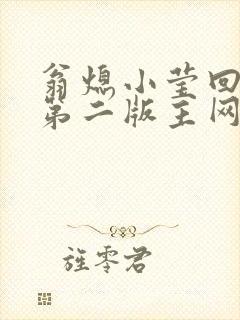 翁熄小莹回
第二版主网
旌零君